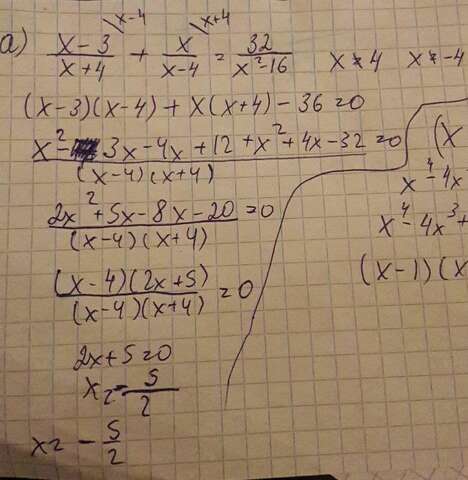 а) x-4 x+4
(x-3)/(x+4) + x/(x-4) = 32/(x²-16) x ≠ 4 x ≠ -4
(x-3)(x-4) + x(x+4) - 36 = 0
(x² - 3x - 4x + 12 + x² + 4x - 32)/((x-4)(x+4)) = 0
(2x² + 5x - 8x - 20)/((x-4)(x+4)) = 0
((x-4)(2x+5))/((x-4)(x+4)) = 0
2x + 5 = 0
x = 5/2
x = - 5/2
(x
x⁴ - 4x
x⁴ - 4x³ +
(x-1)(x